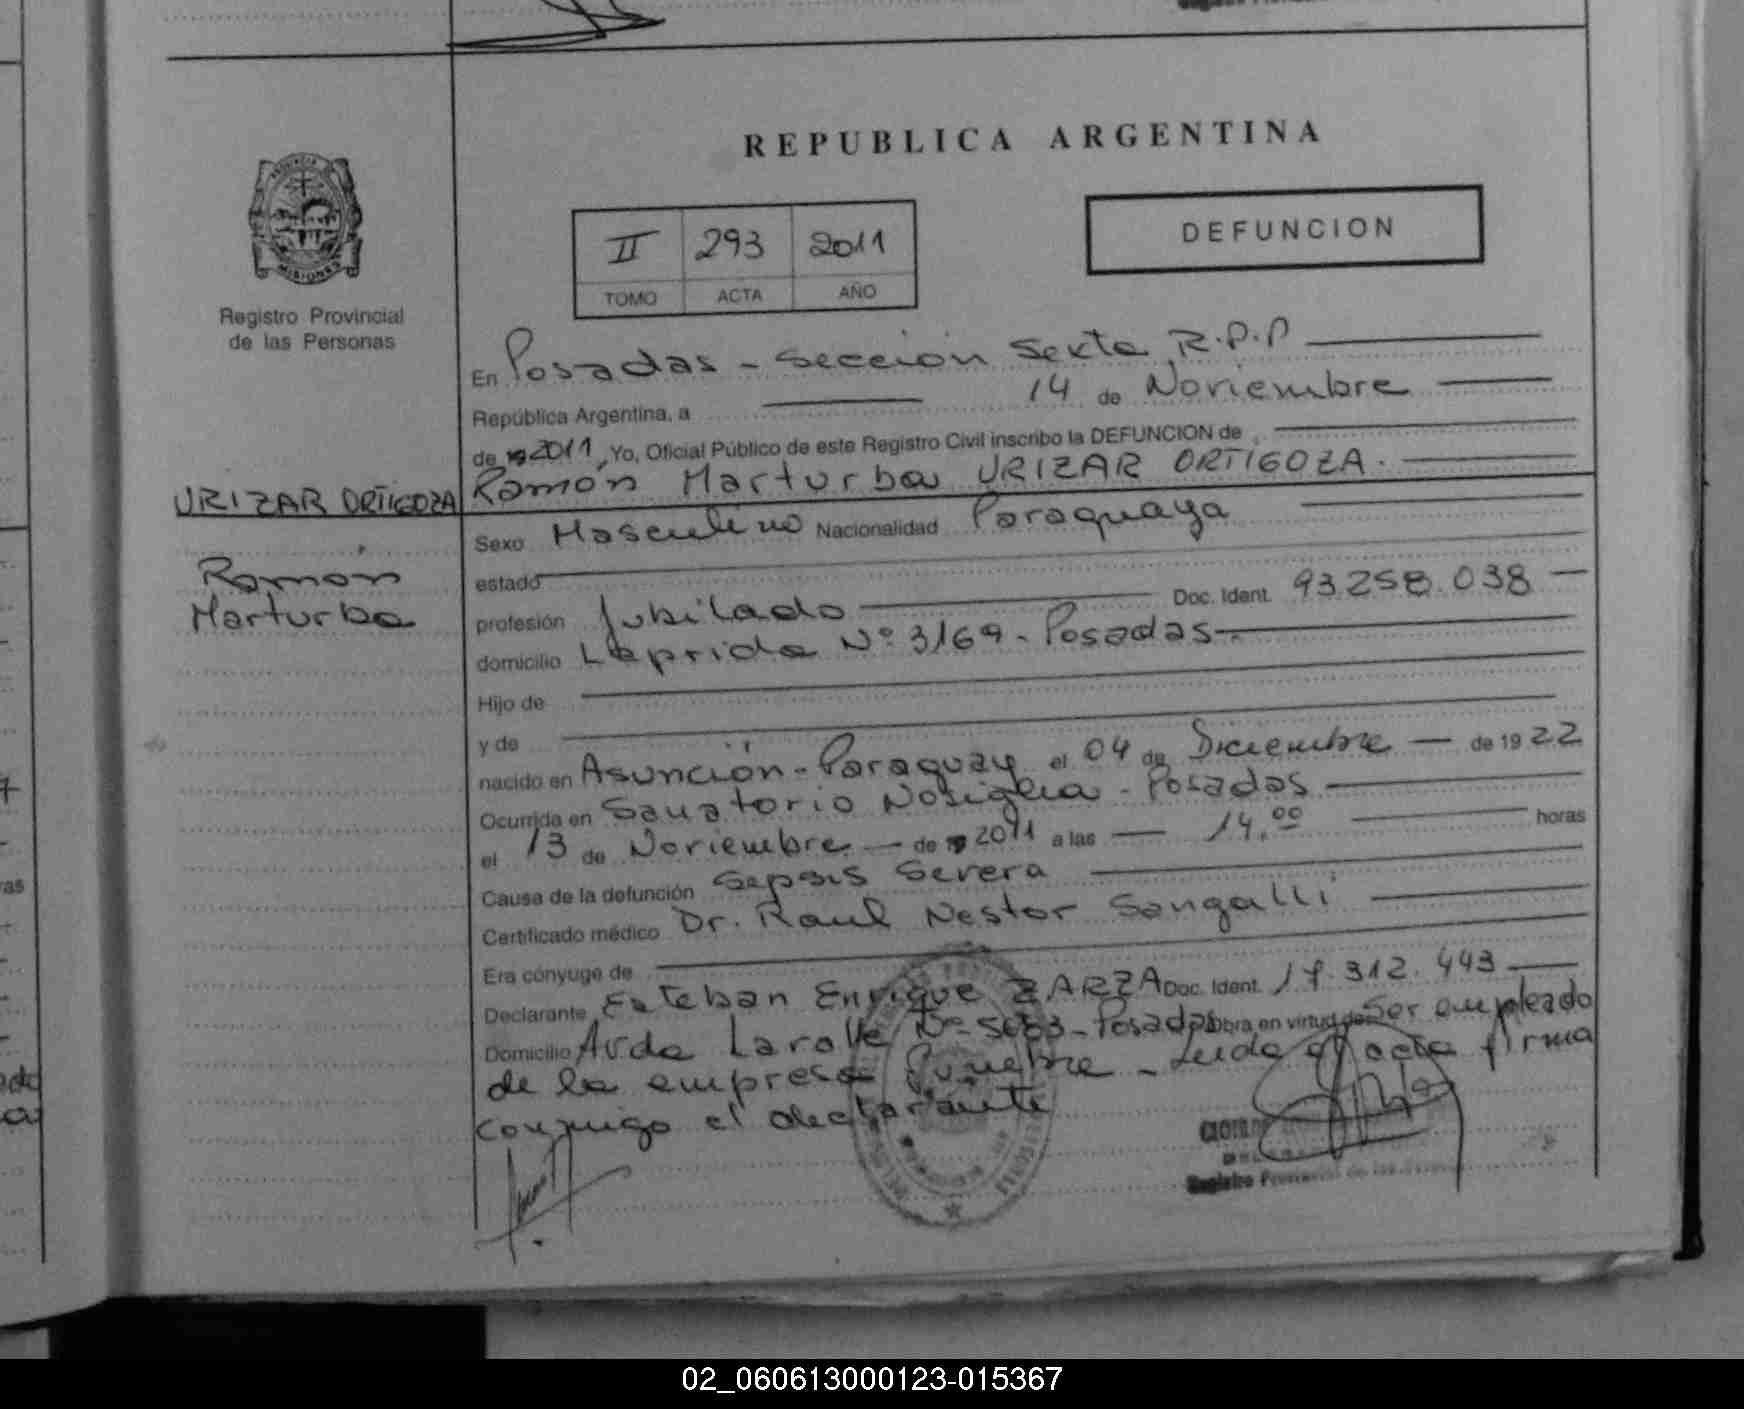 REPUBLICA ARGENTINA
PROVINCIA
MISIONES
Registro Provincial
de las Personas
II 293 2011
TOMO ACTA AÑO
DEFUNCION
En Posadas - Sección Sexta R.P.P
República Argentina, a 14 de Noviembre
de 19 2011, Yo, Oficial Público de este Registro Civil inscribo la DEFUNCION de
Ramón Marturba URIZAR ORTIGOZA.
URIZAR ORTIGOZA
Ramón
Marturba
Sexo Masculino Nacionalidad Paraguaya
estado
profesión Jubilado Doc. Ident. 93.258.038
domicilio Laprida Nº 3169 - Posadas
Hijo de
y de
nacido en Asunción - Paraguay el 04 de Diciembre de 19 22
Ocurrida en Sanatorio Nosiglia - Posadas
el 13 de Noviembre de 19 2011 a las 14.00 horas
Causa de la defunción Sepsis Severa
Certificado médico Dr. Raul Nestor Sangalli
Era cónyuge de
Declarante Esteban Enrique ZARZA Doc. Ident. 17.312.443
Domicilio Avda Laralle Nº Posadas Obra en virtud de Ser empleado
de la empresa Funebre - Leida el acta firma
conmigo el declarante
Registro Provincial de las
02_060613000123-015367